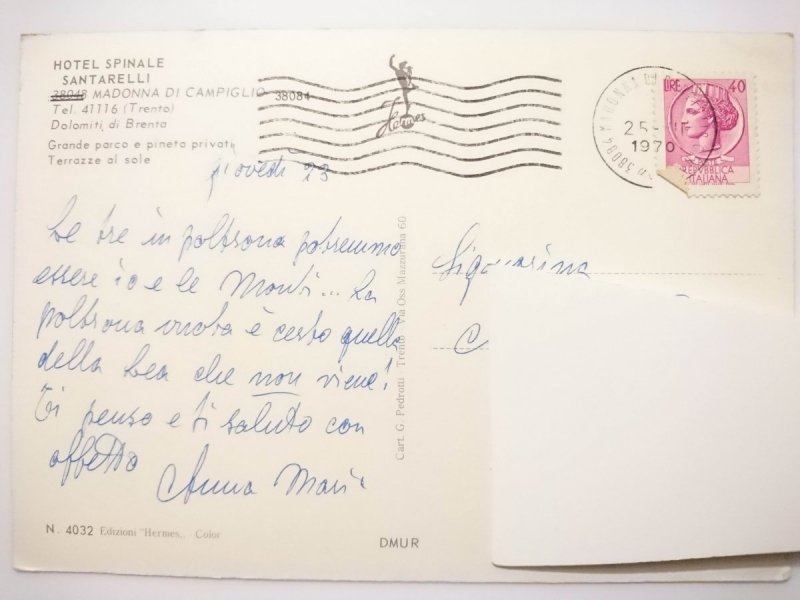 HOTEL SPINALE
SANTARELLI
38048 MADONNA DI CAMPIGLIO 38084
Tel. 41116 (Trento)
Dolomiti di Brenta
Grande parco e pineta privati
Terrazze al sole
Hermes
38084 MADONNA
25
1970
LIRE 40
REPVBBLICA
ITALIANA
giovedì 23
Le tre in poltrona potremmo
essere io e le Monti... La
poltrona vuota è certo quella
della Lea che non viene!
Ti penso e ti saluto con
affetto
Anna Maria
Signorina
C
Cart. G. Pedrotti - Trento - Via Oss Mazzurana 60
N. 4032 Edizioni "Hermes,, - Color
DMUR